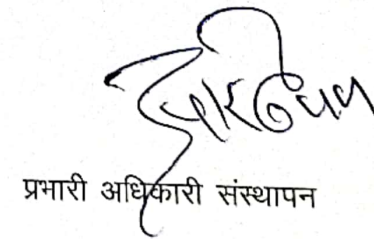 प्रभारी अधिकारी संस्थापन